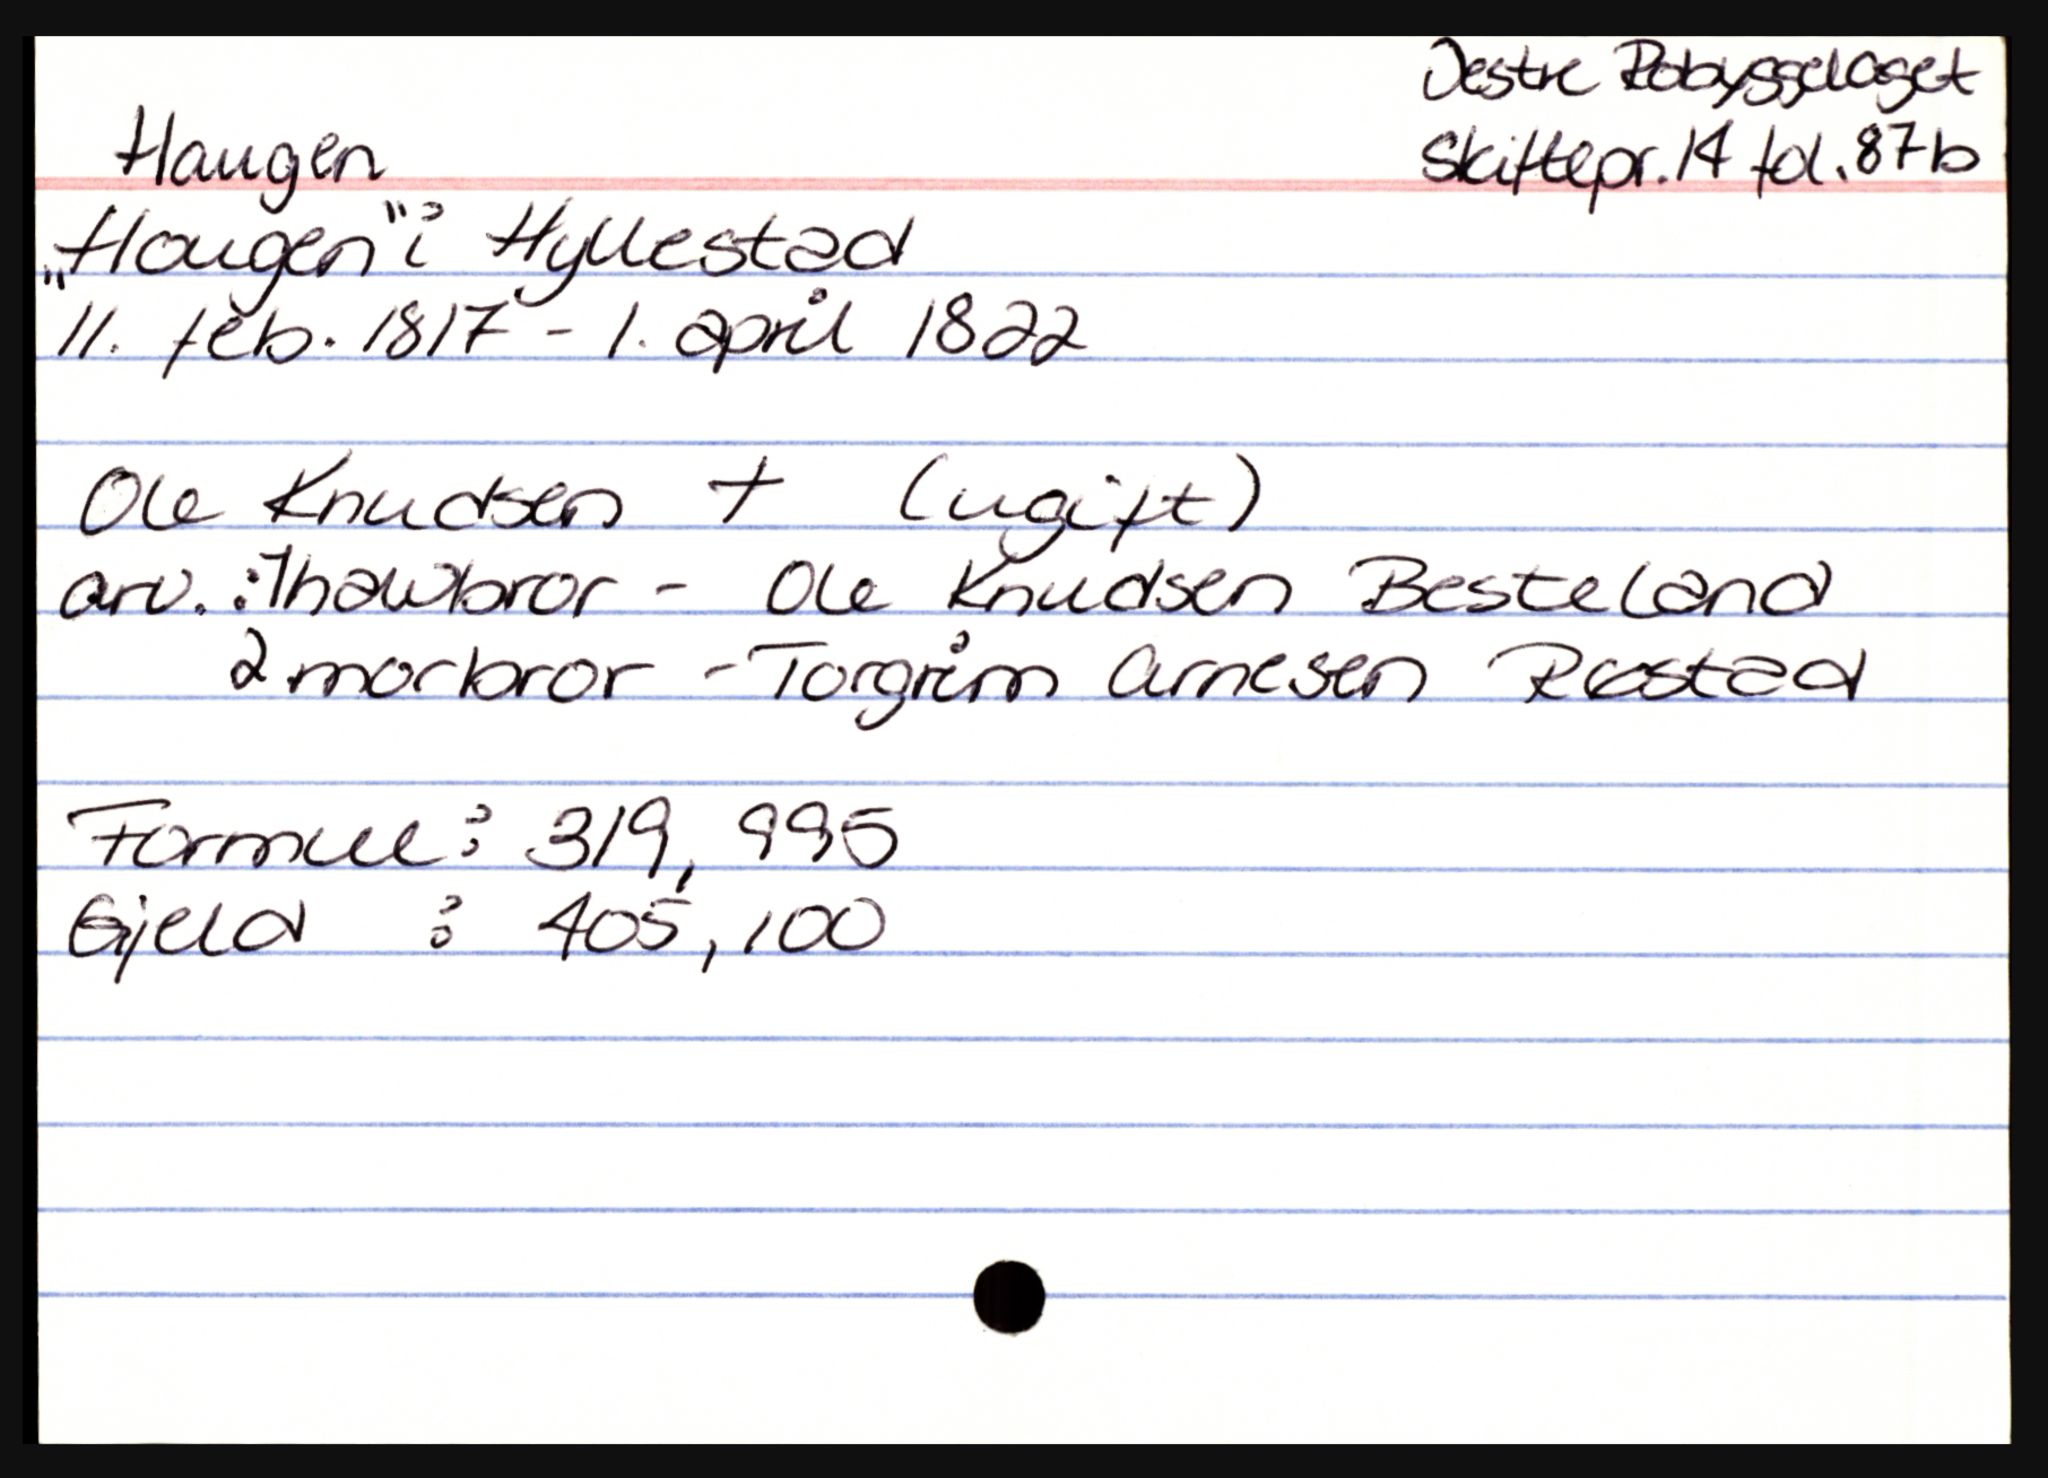 Vestre Robyggelaget
Skiftepr. 14 fol. 87b
Haugen
"Haugen" i Hyllestad
11. feb. 1817 - 1. april 1822
Ole Knudsen † (ugift)
arv.: 1 halvbror - Ole Knudsen Besteland
2 morbror - Torgrim Arnesen Rostad
Formue: 319,995
Gjeld : 405,100